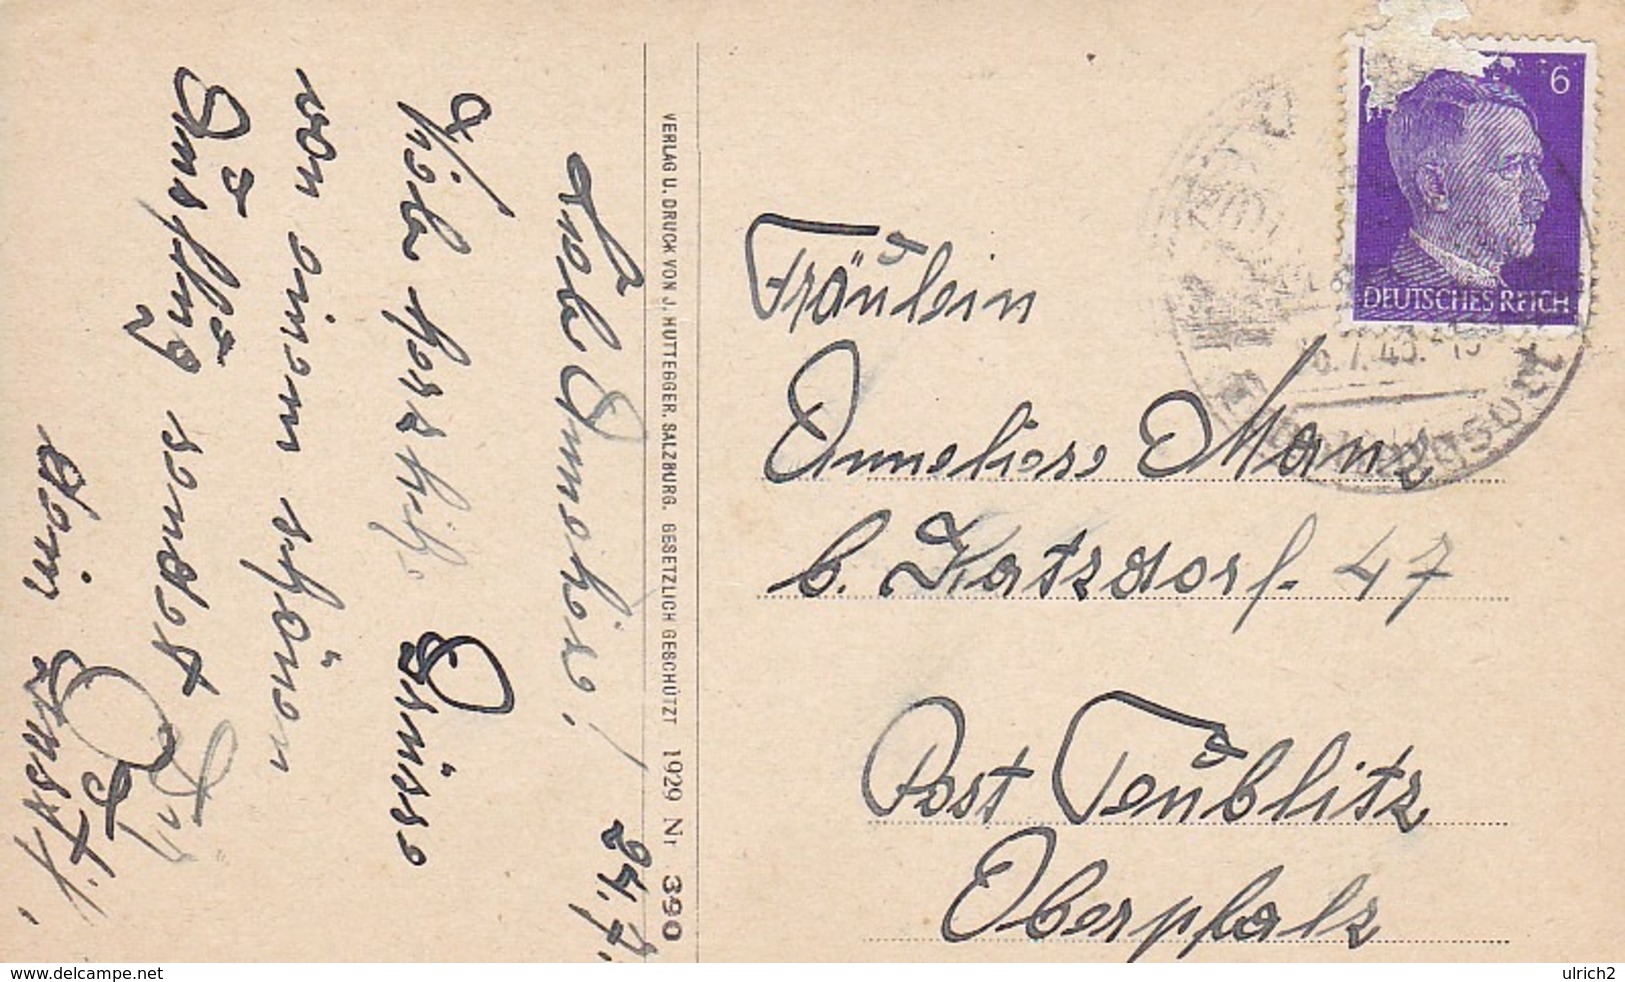 24.7.
Liebe Anneliese!
Viele herzlich. Grüsse
von einem schönen
Ausflug sendet
Dir
Dein Ernstl.
VERLAG U. DRUCK VON J. HUTTEGGER, SALZBURG. GESETZLICH GESCHÜTZT 1929 Nr 390
6
DEUTSCHES REICH
Fräulein
Anneliese Man
b. Katzdorf 47
Post Teublitz
Oberpfalz
www.delcampe.net
ulrich2